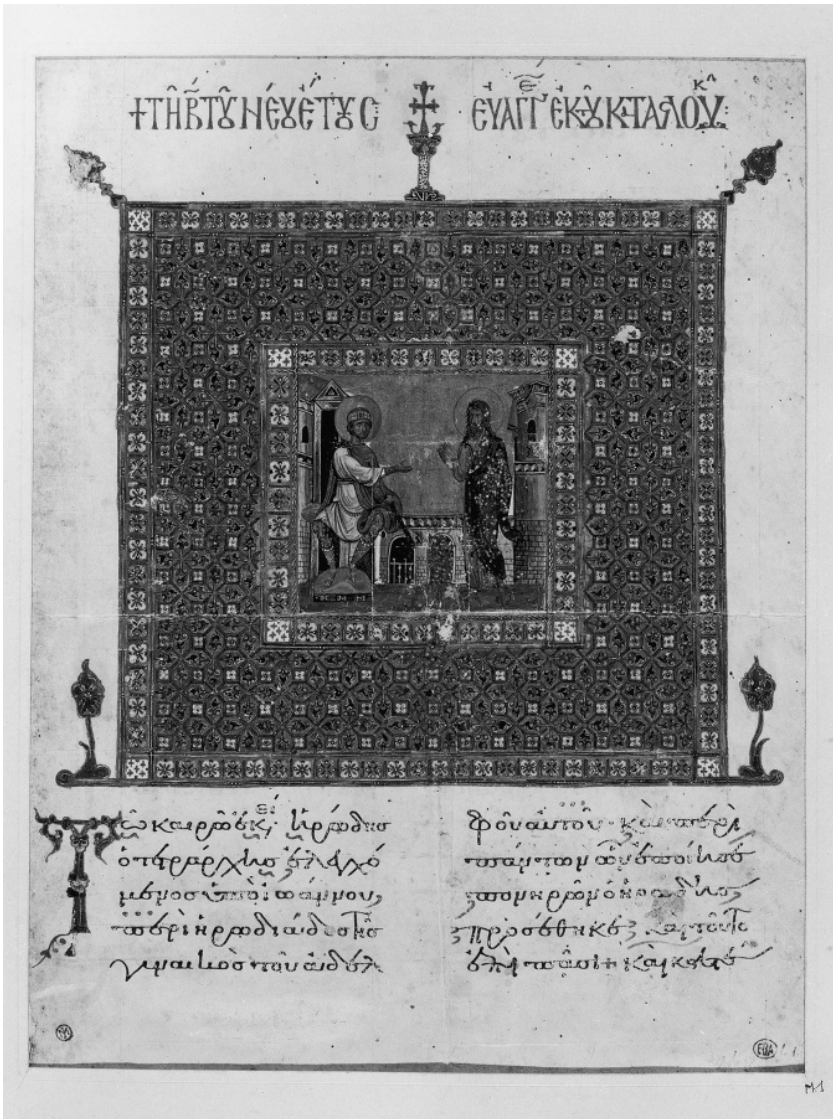 +ΤΗ Β ΤȢ ΝΕȢ ΕΤȢC ΕΥΑΓΓ ΕΚ ΤȢ ΚΤΑ ΛΟΥΚ
Τῶ καιρῶ ἐκ, ἡρώδησ
ὁ τετράρχησ ἐλεγχό
μενοσ ὑπὸ ἰωάννου,
περὶ ἡρωδιάδοσ τῆσ
γυναικὸσ τοῦ ἀδελ
φοῦ αὐτοῦ· καὶ περὶ
πάντων ὧν ἐποίησε
πονηρῶν ὁ ἡρώδησ,
προσέθηκε καὶ τοῦτο
ἐπὶ πᾶσι· καὶ κατέ